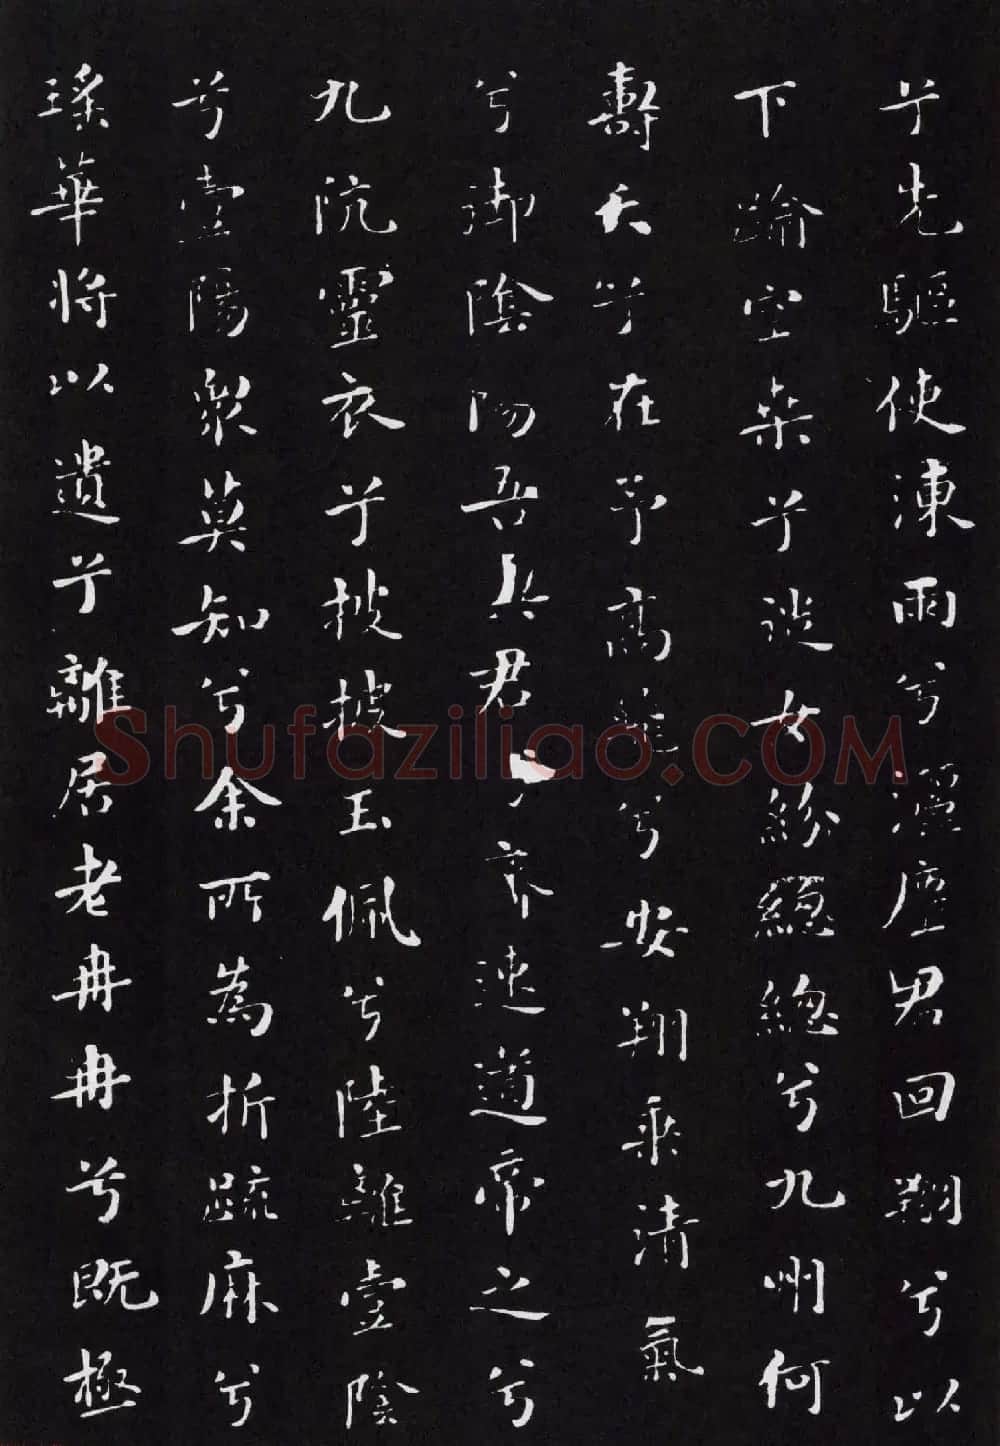 兮先驅使涷雨兮灑塵君回翔兮以
下踰空桒兮從女紛總總兮九州何
壽夭兮在予高飛兮安翔乘清氣
兮御陰陽吾與君兮齊速道帝之兮
九阬靈衣兮披披玉佩兮陸離壹陰
兮壹陽衆莫知兮余所為折疏麻兮
瑤華將以遺兮離居老冉冉兮既極
Shufaziliao.COM